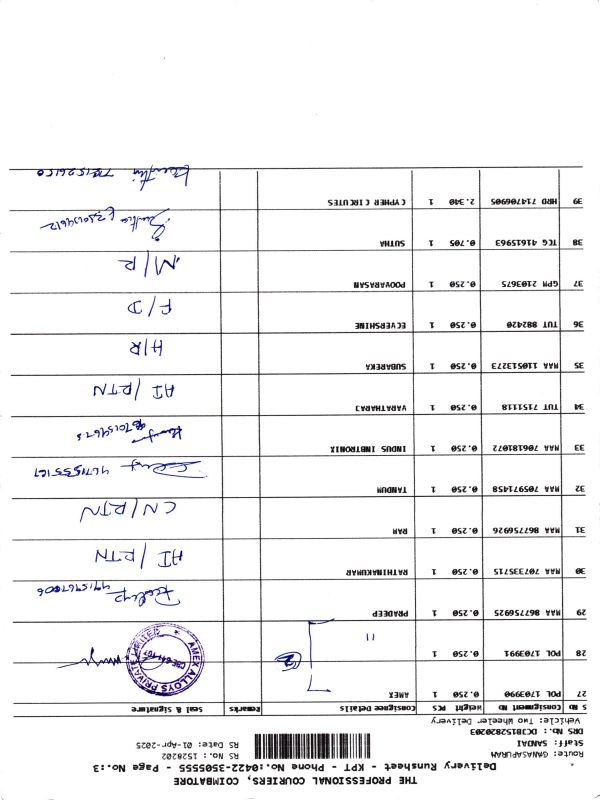 THE PROFESSIONAL COURIERS, COIMBATORE
Delivery Runsheet - KPT - Phone No.:0422-3505555 - Page No.:3
Route: GANASAPURAM
Staff: SANDAI
DRS No.: DCJB1528203
RS No.: 1528202
Vehicle: Two Wheeler Delivery
RS Date: 01-Apr-2025
S NO Consignment NO Weight PCS Consignee Details Remarks Seal & Signature
27 POL 1703990 0.250 1 AMEX
28 POL 1703991 0.250 1 " 2
AMEX ALLOYS PRIVATE LIMITED
CBE-641 107
29 MAA 867756925 0.250 1 PRADEEP
30 MAA 707335715 0.250 1 RATHINAKUMAR AI/RTN
31 MAA 867756926 0.250 1 RAM CN/RTN
32 MAA 705971458 0.250 1 TANDUM
33 MAA 706181072 0.250 1 INDUS INBTRONIX
34 TUT 7151118 0.250 1 VARATHARAJ AI/RTN
35 MAA 110513273 0.250 1 SUBAREKA H/R
36 TUT 882420 0.250 1 ECVERSHINE F/D
37 GPM 2103675 0.250 1 POOVARASAN M/R
38 TCG 41615963 0.705 1 SUTHA
39 HRD 714706905 2.340 1 CYPHER CIRCUTES